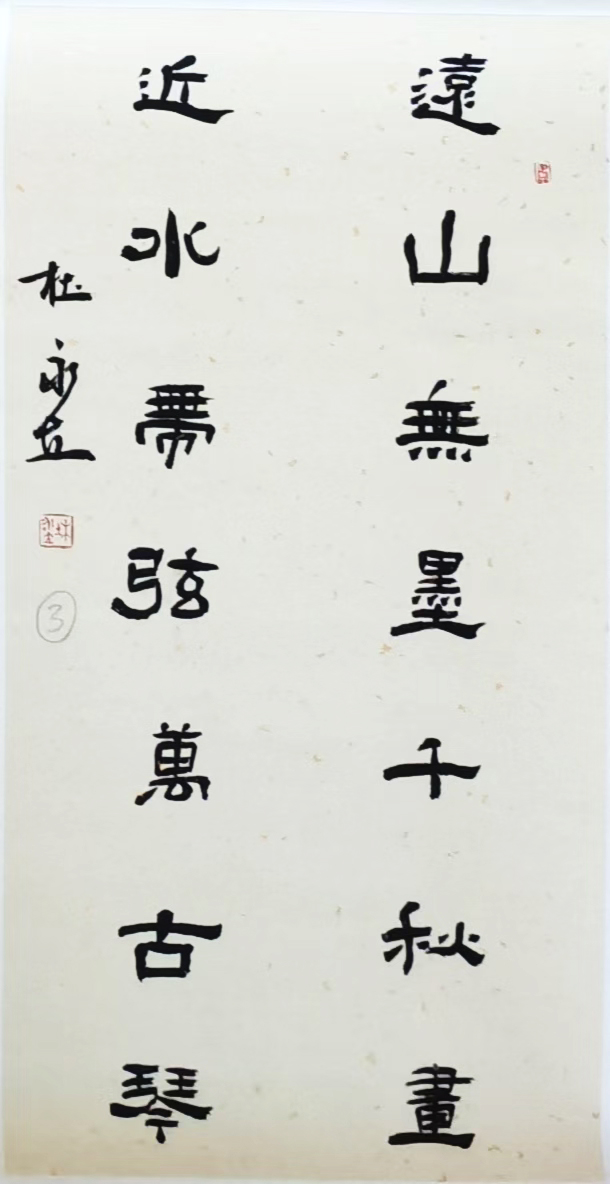 遠山無墨千秋畫
近水無弦萬古琴
杜永立
3